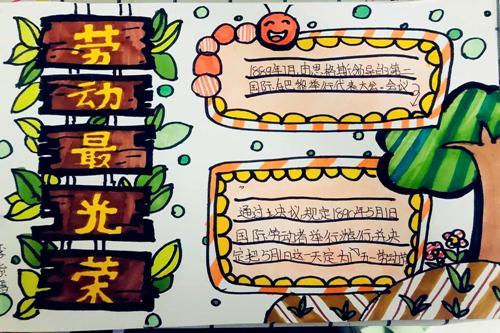 劳动最光荣
1889年7月,由恩格斯领导的第二
国际,在巴黎举行代表大会,会议
通过决议,规定1890年5月1日
国际劳动者举行游行,并决
定把5月1日这一天定为